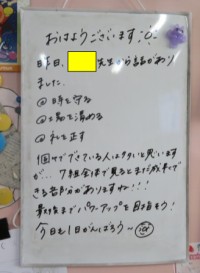 おはようございます!!
昨日、先生から話があり
ました。
@時を守る
@場を清める
@礼を正す
1個ずつできている人は多いと思います
が、7組全体で見るとまだ成長で
きる部分がありますね!!!
最後までパワーアップを目指そう!
今日も1日がんばろう〜